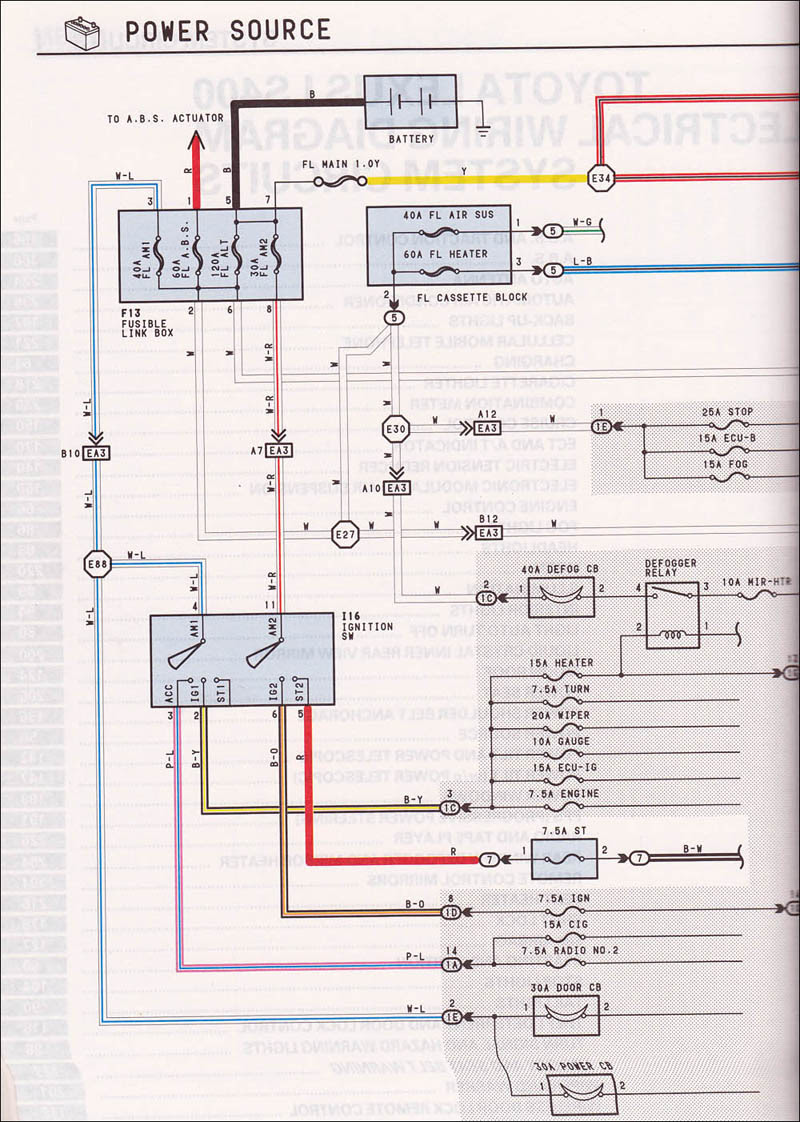 POWER SOURCE
B
TO A.B.S. ACTUATOR
BATTERY
FL MAIN 1.0Y
Y
E34
W-L
R
B
3
1
5
7
40A FL AM1
60A FL A.B.S.
120A FL ALT
30A FL AM2
40A FL AIR SUS
1
5
W-G
60A FL HEATER
3
5
L-B
2
FL CASSETTE BLOCK
F13
FUSIBLE
LINK BOX
2
6
8
5
W
W
W-R
W
W
W-L
W-R
W
W
A12
E30
W
EA3
W
1
1E
25A STOP
15A ECU-B
15A FOG
B10
EA3
A7
EA3
A10
EA3
W-L
W-R
W
W
E27
W
B12
EA3
W
E88
W-L
W-L
W-R
W
2
1C
40A DEFOG CB
1
2
DEFOGGER
RELAY
4
3
2
1
10A MIR-HTR
W-L
4
11
AM1
AM2
I16
IGNITION
SW
ACC
IG1
ST1
IG2
ST2
3
2
6
5
P-L
B-Y
B-O
R
15A HEATER
7.5A TURN
20A WIPER
10A GAUGE
15A ECU-IG
7.5A ENGINE
B-Y
3
1C
R
7
1
7.5A ST
2
7
B-W
B-O
8
1D
7.5A IGN
15A CIG
P-L
14
1A
7.5A RADIO NO.2
W-L
2
1E
30A DOOR CB
1
2
30A POWER CB
1
2